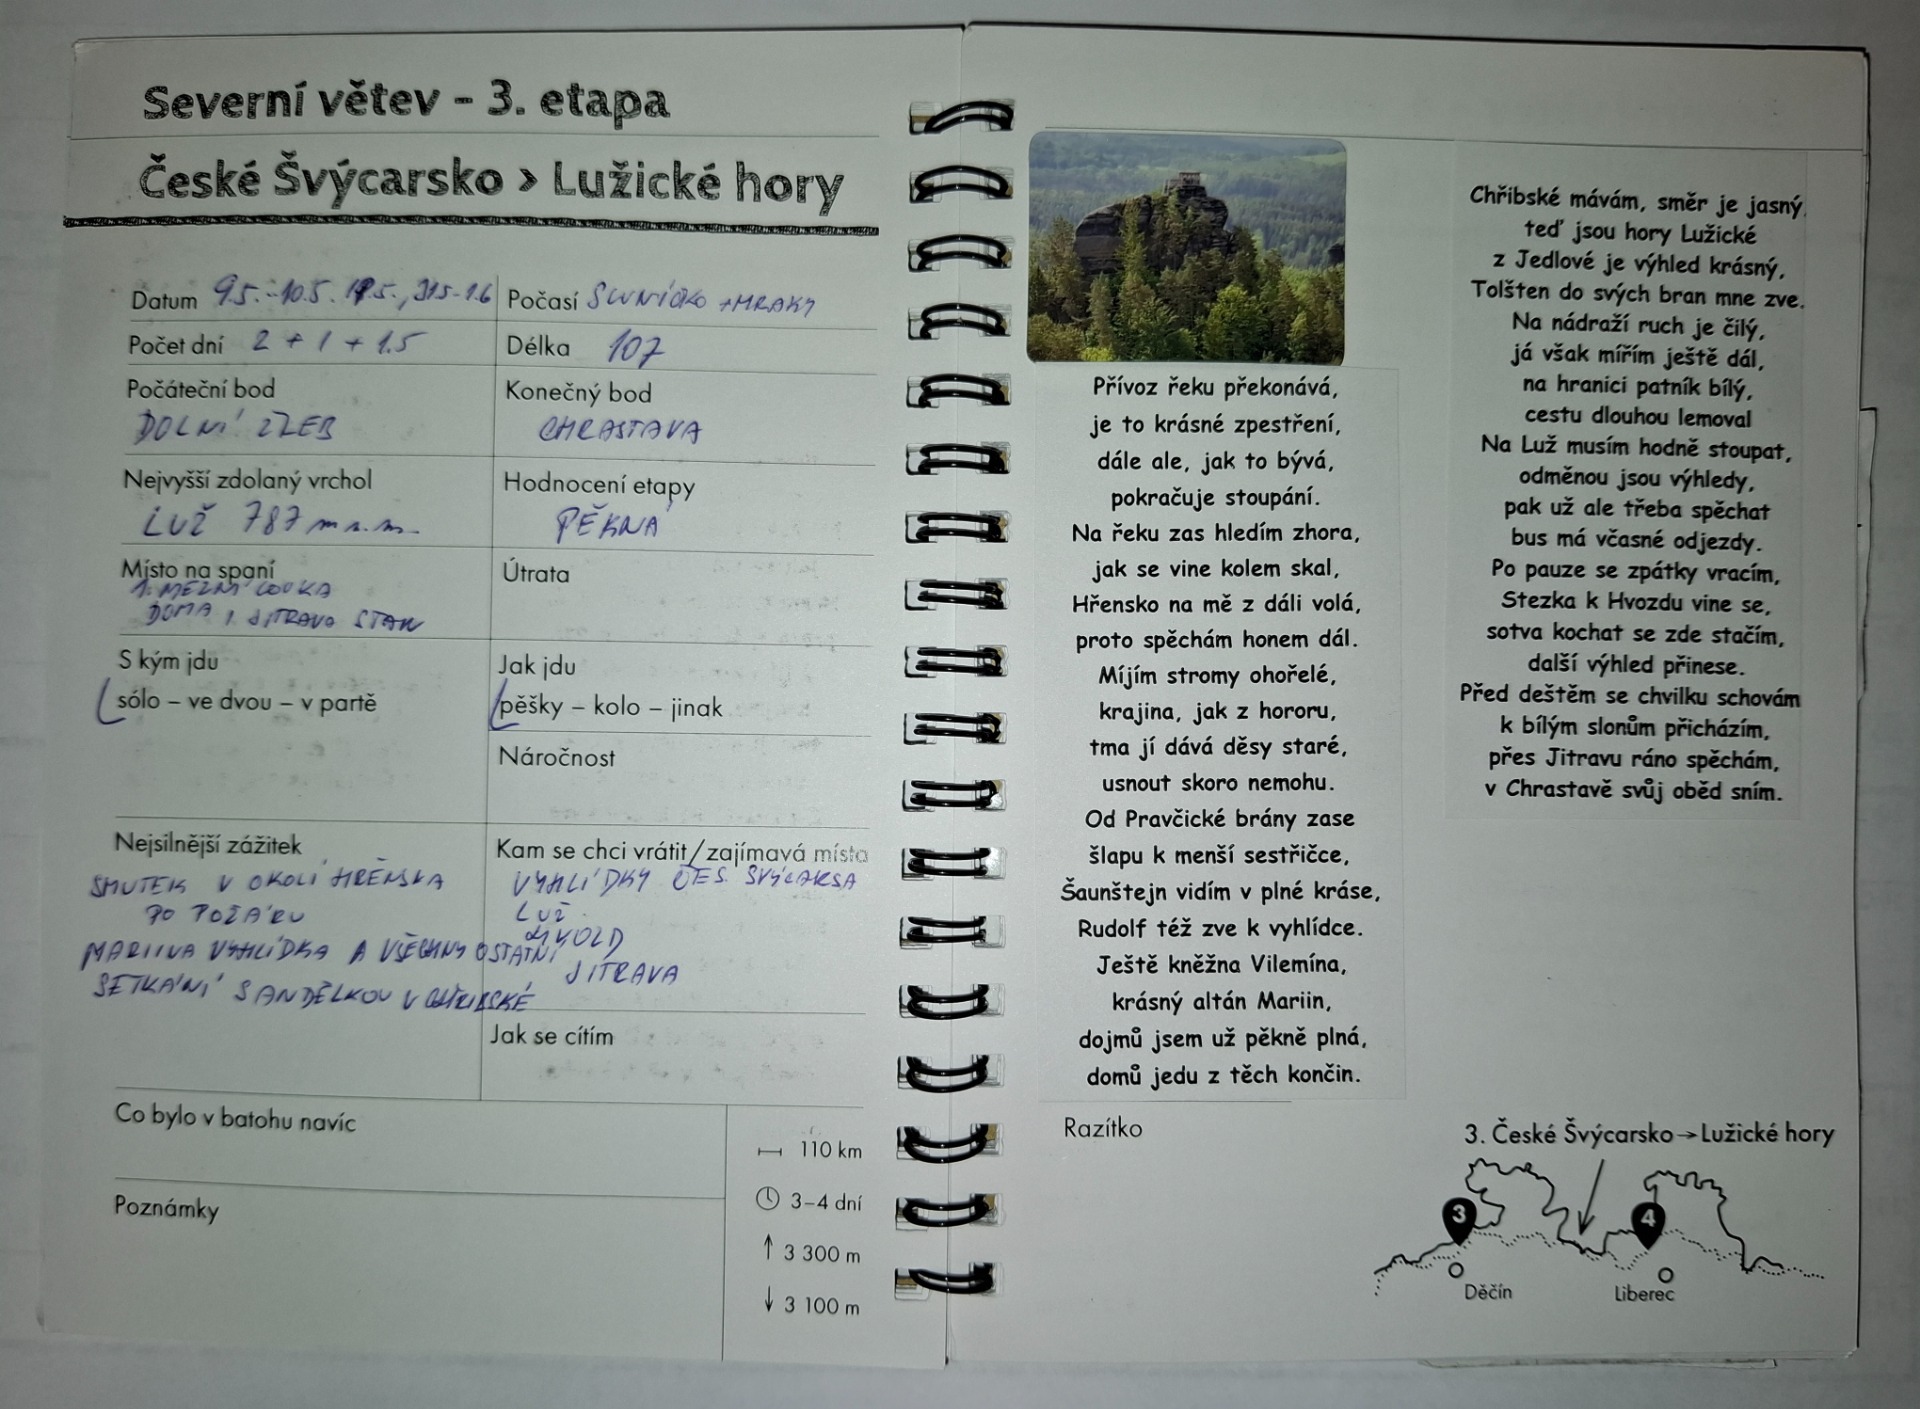 Severní větev - 3. etapa
České Švýcarsko > Lužické hory
Datum 9.5.-10.5. 17.5., 31.5-1.6
Počasí SLUNÍČKO + MRAKY
Počet dní 2 + 1 + 1.5
Délka 107
Počáteční bod
DOLNÍ ŽLEB
Konečný bod
CHRASTAVA
Nejvyšší zdolaný vrchol
LUŽ 787 m n.m.
Hodnocení etapy
PĚKNÁ
Místo na spaní
1. MEZNÍ LOUKA
DOMA, JITRAVA STAN
Útrata
S kým jdu
sólo – ve dvou – v partě
Jak jdu
pěšky – kolo – jinak
Náročnost
Nejsilnější zážitek
SMUTEK V OKOLÍ HŘENSKA
PO POŽÁRU
MARIINA VYHLÍDKA A VŠECHNY OSTATNÍ
SETKÁNÍ S ANDĚLKOU V CHŘIBSKÉ
Kam se chci vrátit/zajímavá místa
VYHLÍDKY ČES. ŠVÝCARSKA
LUŽ
HVOZD
JITRAVA
Jak se cítím
Co bylo v batohu navíc
Poznámky
110 km
3–4 dní
↑ 3 300 m
↓ 3 100 m
Přívoz řeku překonává,
je to krásné zpestření,
dále ale, jak to bývá,
pokračuje stoupání.
Na řeku zas hledím zhora,
jak se vine kolem skal,
Hřensko na mě z dáli volá,
proto spěchám honem dál.
Míjím stromy ohořelé,
krajina, jak z hororu,
tma jí dává děsy staré,
usnout skoro nemohu.
Od Pravčické brány zase
šlapu k menší sestřičce,
Šaunštejn vidím v plné kráse,
Rudolf též zve k vyhlídce.
Ještě kněžna Vilemína,
krásný altán Mariin,
dojmů jsem už pěkně plná,
domů jedu z těch končin.
Chřibské mávám, směr je jasný,
teď jsou hory Lužické
z Jedlové je výhled krásný,
Tolšten do svých bran mne zve.
Na nádraží ruch je čilý,
já však mířím ještě dál,
na hranici patník bílý,
cestu dlouhou lemoval
Na Luž musím hodně stoupat,
odměnou jsou výhledy,
pak už ale třeba spěchat
bus má včasné odjezdy.
Po pauze se zpátky vracím,
Stezka k Hvozdu vine se,
sotva kochat se zde stačím,
další výhled přinese.
Před deštěm se chvilku schovám
k bílým slonům přicházím,
přes Jitravu ráno spěchám,
v Chrastavě svůj oběd sním.
Razítko
3. České Švýcarsko→Lužické hory
3
4
Děčín
Liberec